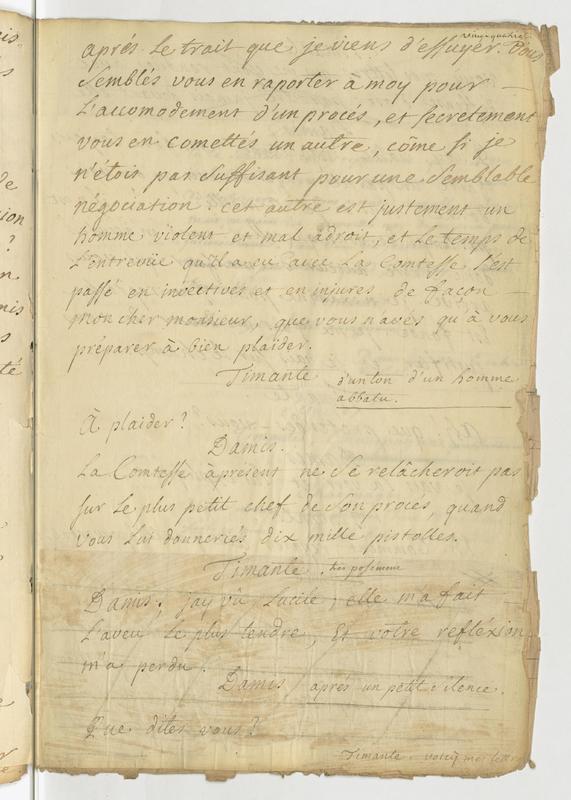 vingt-quatre
aprés Le trait que je viens d'essuyer. Vous
semblés vous en raporter à moy pour
L'accomodement d'un procés, et secretement
vous en comettés un autre, côme si je
n'étois pas suffisant pour une semblable
négociation. cet autre est justement un
homme violent et mal adroit, et Le temps de
L'entrevüe qu'il a eu avec La Comtesse s'est
passé en invectives et en injures de façon
mon cher monsieur, que vous n'avés qu'à vous
préparer à bien plaider.
Timante d'un ton d'un homme
abbatu.
À plaider?
Damis.
La Comtesse àpresent ne se relâcheroit pas
sur Le plus petit chef de son procés, quand
vous lui donneriés dix mille pistolles.
Timante. très posément
Damis, j'ay vû Lucile; elle m'a fait
L'aveu Le plus tendre, Et votre refléxion
m'a perdu.
Damis aprés un petit silence.
Que dites vous?
Timante. voicy mes